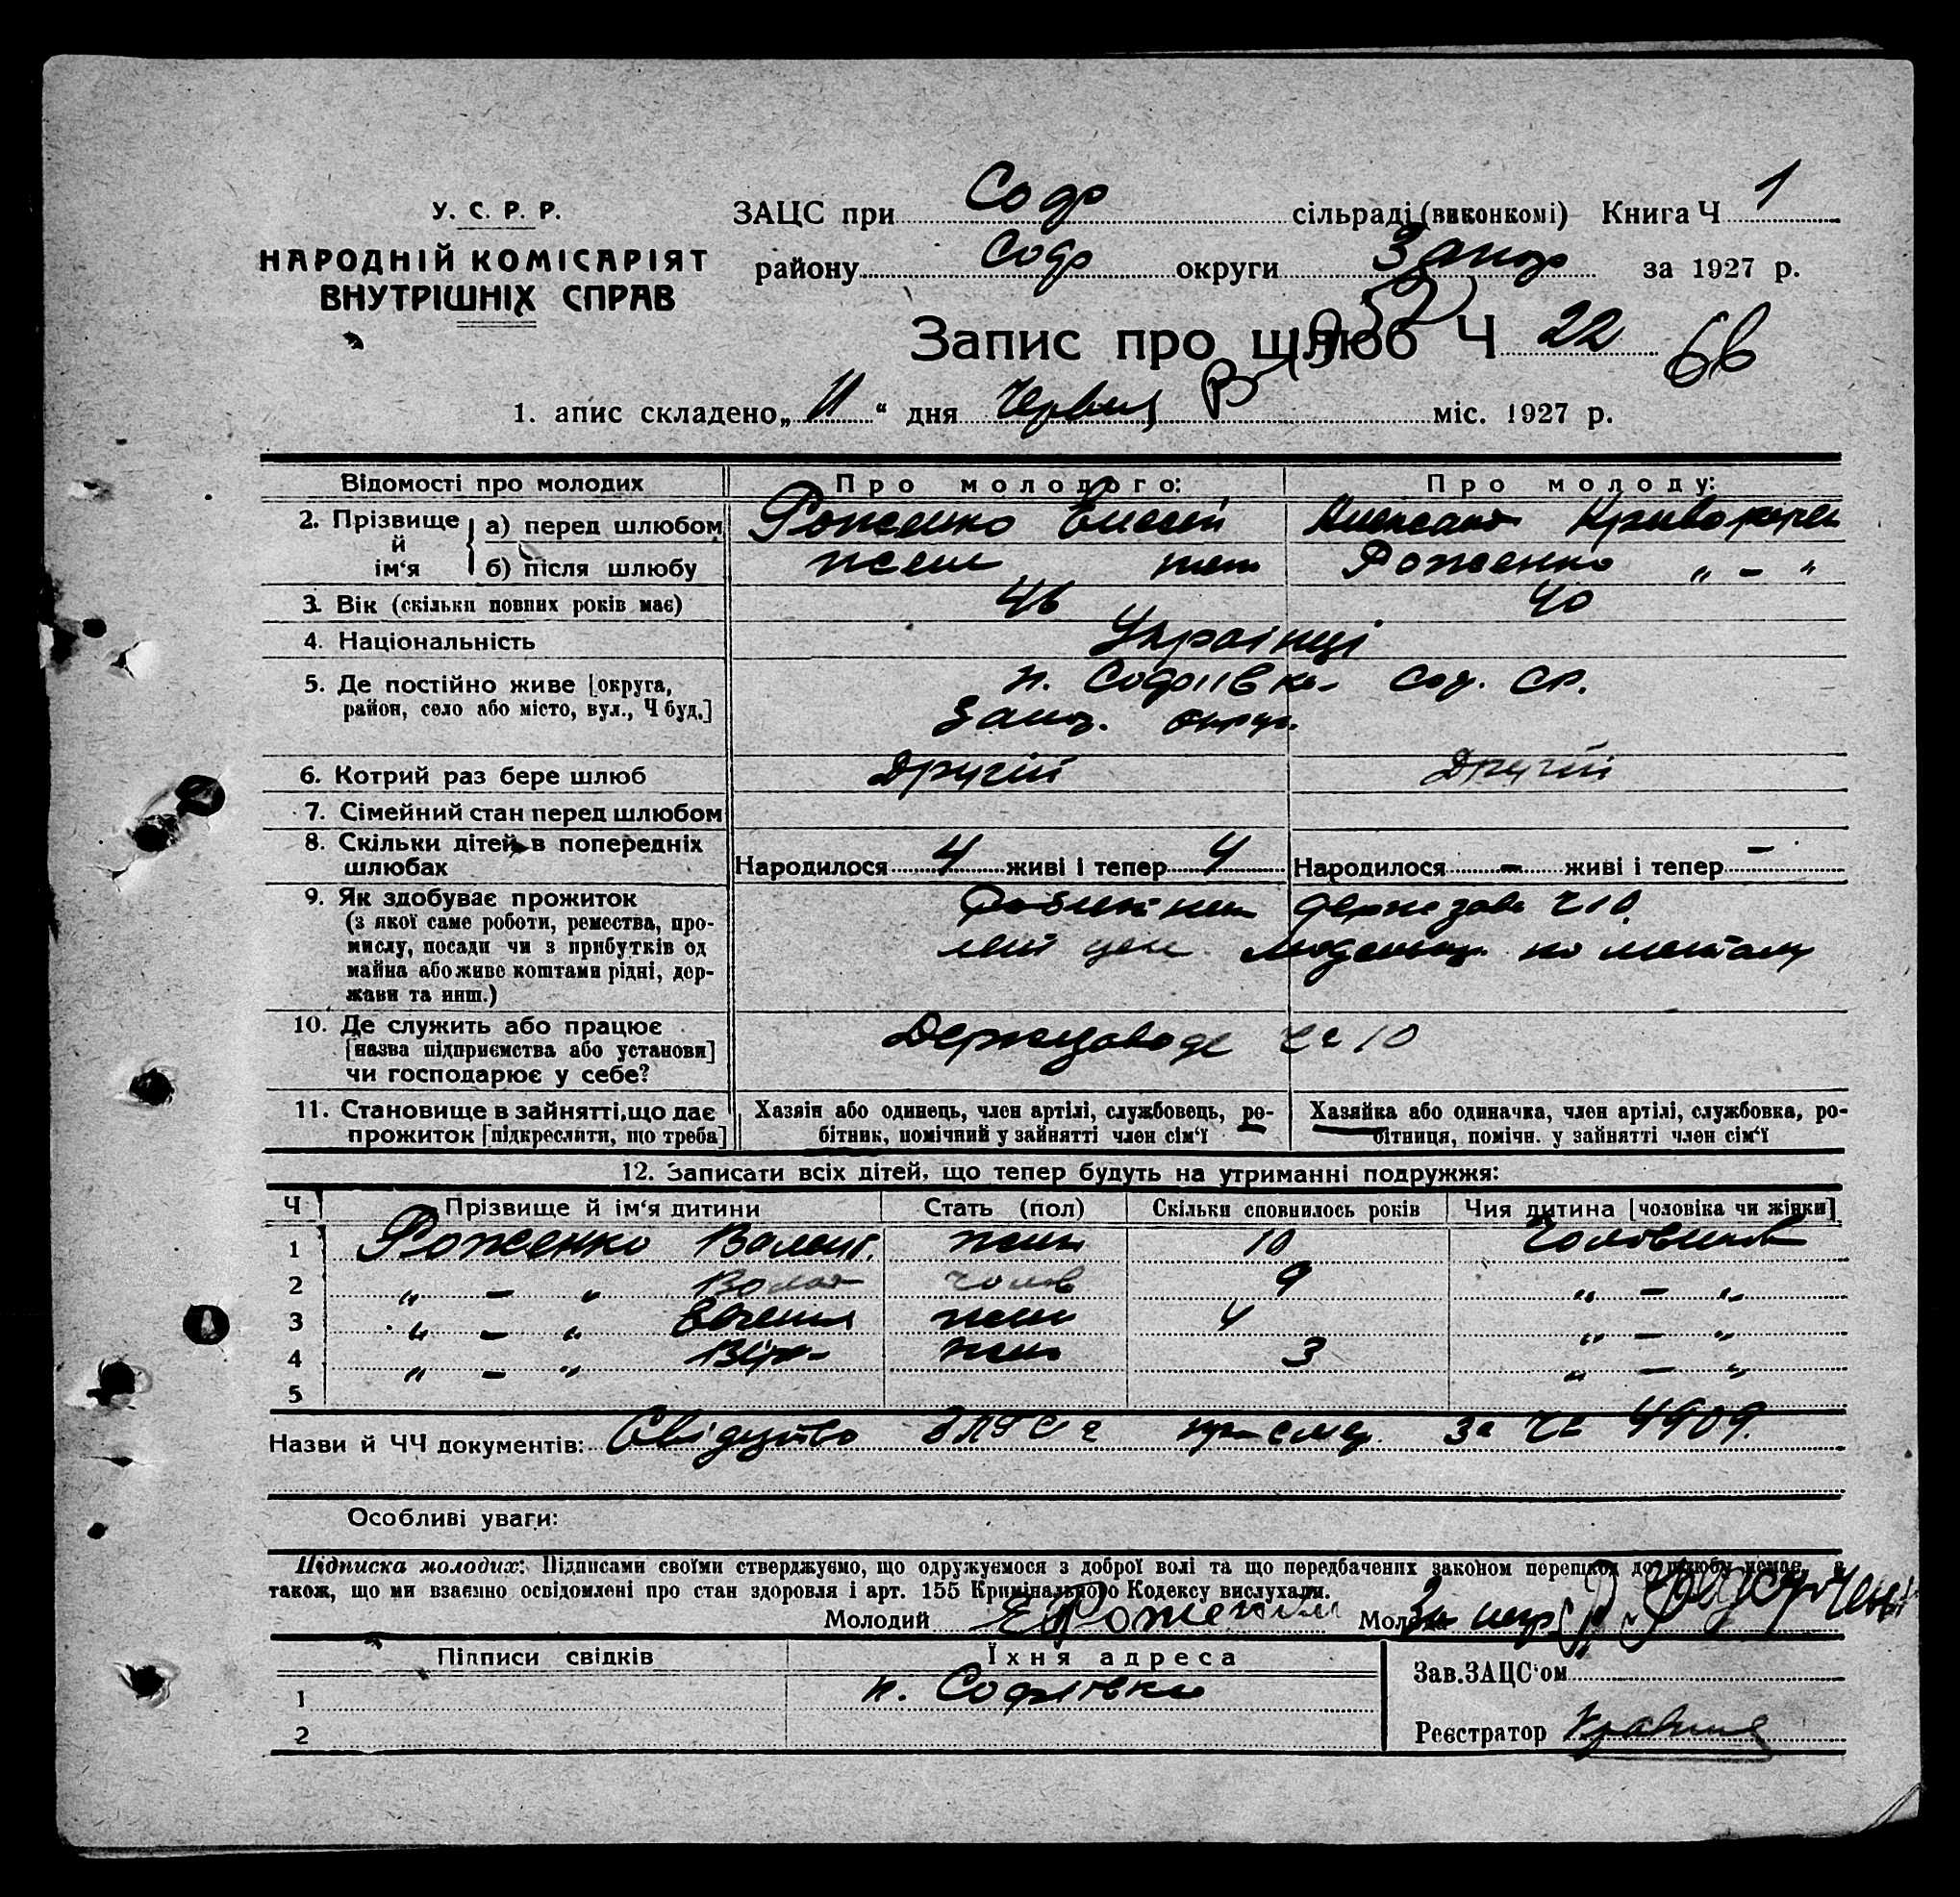 У. С. Р. Р.
НАРОДНІЙ КОМІСАРІЯТ
ВНУТРІШНІХ СПРАВ
ЗАЦС при Соф сільраді (виконкомі) Книга Ч 1
району Соф округи Запор за 1927 р.
Запис про шлюб Ч 22
66
1. апис складено „11“ дня Червня міс. 1927 р.
Відомості про молодих Про молодого: Про молоду:
2. Прізвище й ім‘я а) перед шлюбом Роженко Александ
б) після шлюбу Роженко „ – „
3. Вік (скільки повних років має) 46 40
4. Національність Українці
5. Де постійно живе [округа, район, село або місто, вул., Ч буд.] п. Софіівка Соф. ср.
Запоз. округ.
6. Котрий раз бере шлюб Другий Другий
7. Сімейний стан перед шлюбом
8. Скільки дітей в попередніх шлюбах Народилося 4 живі і тепер 4 Народилося – живі і тепер –
9. Як здобуває прожиток
(з якої саме роботи, ремества, про-
мислу, посади чи з прибутків од
майна або живе коштами рідні, дер-
жави та инш.)
10. Де служить або працює [назва підприємства або установи] чи господарює у себе? Держзаводе № 10
11. Становище в зайнятті, що дає прожиток [підкреслити, що треба] Хазяїн або одинець, член артілі, службовець, ро-
бітник, помічний у зайнятті член сім‘ї
Хазяйка або одиначка, член артілі, службовка, ро-
бітниця, помічн. у зайнятті член сім‘ї
12. Записати всіх дітей, що тепер будуть на утриманні подружжя:
Ч Прізвище й ім‘я дитини Стать (пол) Скільки сповнилось років Чия дитина [чоловіка чи жінки]
1 Роженко Валент. жен 10 Чоловіка
2 „ – „ чолов 9 „ – „
3 „ – „ Евгения жен 4 „ – „
4 „ – „ Віра жен 3 „ – „
5
Назви й ЧЧ документів: Свідуцтво за № 4909.
Особливі уваги:
Підписка молодих: Підписами своїми стверджуємо, що одружуємося з доброї волі та що передбачених законом перешкод до шлюбу немає, а
також, що ми взаємно освідомлені про стан здоровля і арт. 155 Кримінального Кодексу вислухали.
Молодий Е Роженко Молода
Підписи свідків Їхня адреса
1 п. Софіівка
2
Зав. ЗАЦС‘ом
Реєстратор